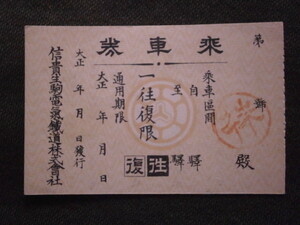 券車乘
第 號
殿
乘車區間
自 驛
至 驛
一往復限
通用期限
大正 年 月 日
復 往
大正 年 月 日發行
信貴生駒電氣鐵道株式會社